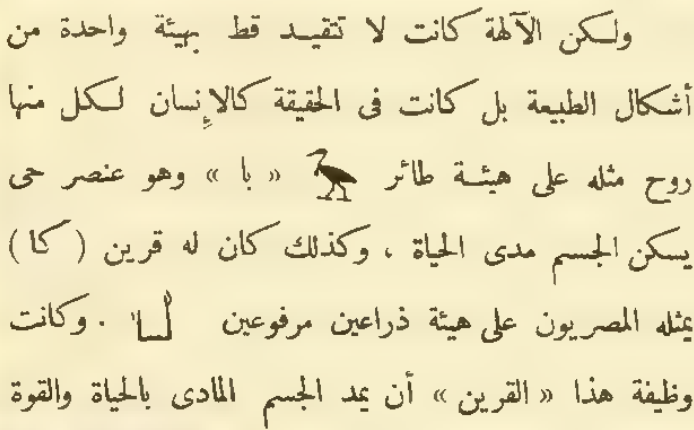 ولكن الآلهة كانت لا تتقيد قط بهيئة واحدة من
أشكال الطبيعة بل كانت فى الحقيقة كالإنسان لكل منها
روح مثله على هيئة طائر 𓅡 « با » وهو عنصر حى
يسكن الجسم مدى الحياة ، وكذلك كان له قرين ( كا )
يمثله المصريون على هيئة ذراعين مرفوعين 𓂓 . وكانت
وظيفة هذا « القرين » أن يمد الجسم المادى بالحياة والقوة